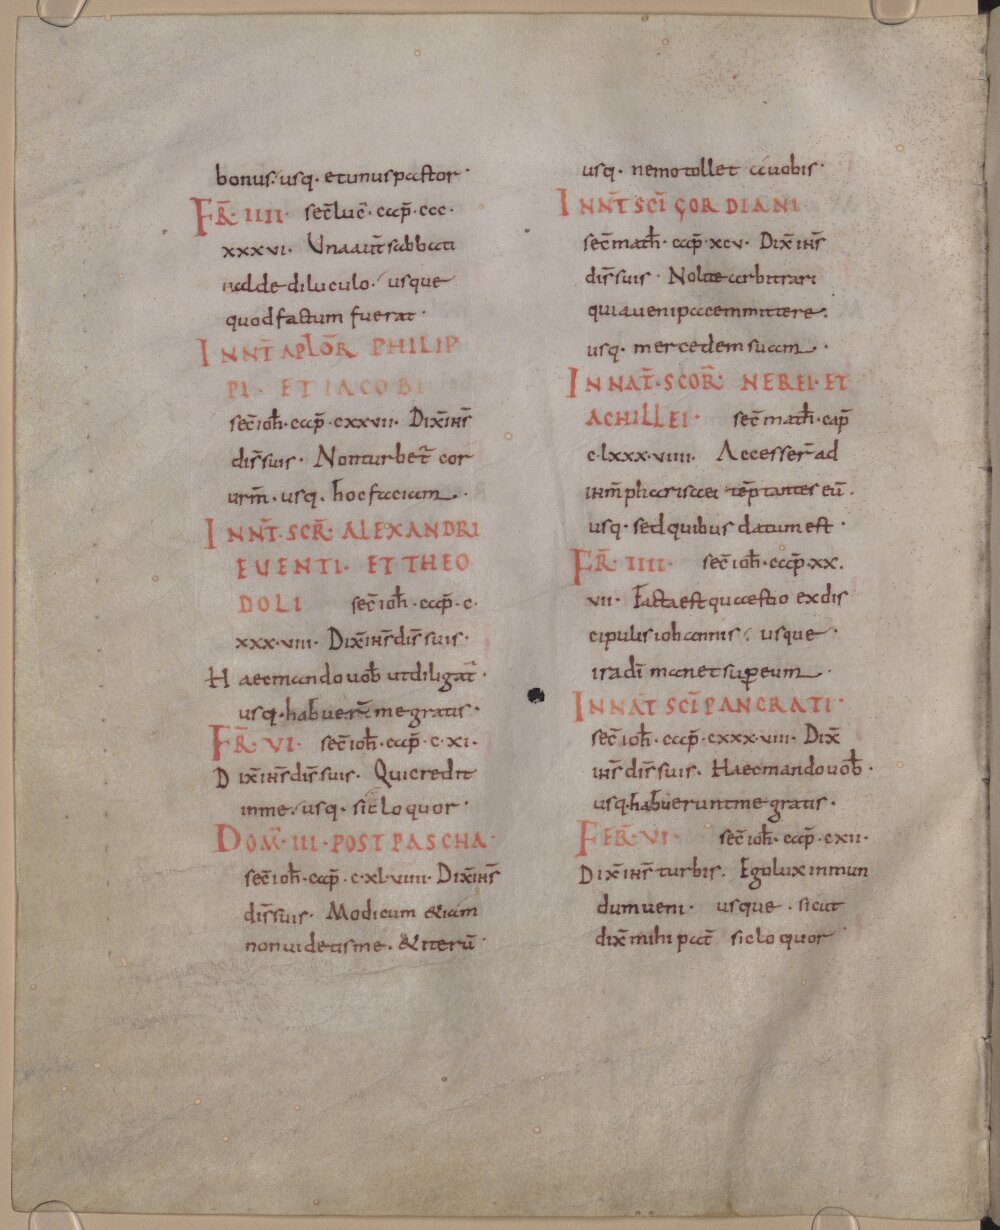 bonus. usq. et unus pastor.
FR̄. IIII. sec̄ luc̄. cap̄. ccc.
xxxvi. Una aut̄ sabbati
ualde diluculo. usque
quod factum fuerat.
IN NT̄ APLŌR PHILIP
PI. ET IACOBI
sec̄ ioh̄. cap̄. cxxvii. Dix̄ ih̄s
dis̄ suis. Non turbet̄ cor
urm̄. usq. hoc faciam.
IN NT̄. SCR̄. ALEXANDRI
EVENTI. ET THEO
DOLI sec̄ ioh̄. cap̄. c.
xxx.viii. Dix̄ ih̄s dis̄ suis.
Haec mando uob̄ ut diligat̄.
usq. habuer̄ me gratis.
FR̄. VI. sec̄ ioh̄. cap̄. c.xi.
Dix̄ ih̄s dis̄ suis. Qui credit
in me. usq. sic loquor.
DOM̄. III. POST PASCHA.
sec̄ ioh̄. cap̄. c.xl.viiii. Dix̄ ih̄s
dis̄ suis. Modicum & iam
non uidetis me. & iterū.
usq. nemo tollet a uobis.
IN NT̄ SCĪ GORDIANI
sec̄ math̄. cap̄. xcv. Dix̄ ih̄s
dis̄ suis. Nolite arbitrari
quia ueni pacem mittere.
usq. mercedem suam.
IN NAT̄. SCOR̄. NEREI. ET
ACHILLEI. sec̄ math̄. cap̄
c.lxxx.viiii. Accesser̄ ad
ihm̄ pharisaei tēptantes eū.
usq. sed quibus datum est.
FR̄. IIII. sec̄ ioh̄. cap̄. xx.
vii. Facta est quaestio ex dis
cipulis iohannis. usque
ira dī manet super eum.
IN NAT̄ SCĪ PANCRATI.
sec̄ ioh̄. cap̄. cxxx.viii. Dix̄
ih̄s dis̄ suis. Haec mando uob̄.
usq. habuerunt me gratis.
FER̄. VI. sec̄ ioh̄. cap̄. cxii.
Dix̄ ih̄s turbis. Ego lux in mun
dum ueni. usque. sicut
dix̄ mihi pat̄ sic loquor.